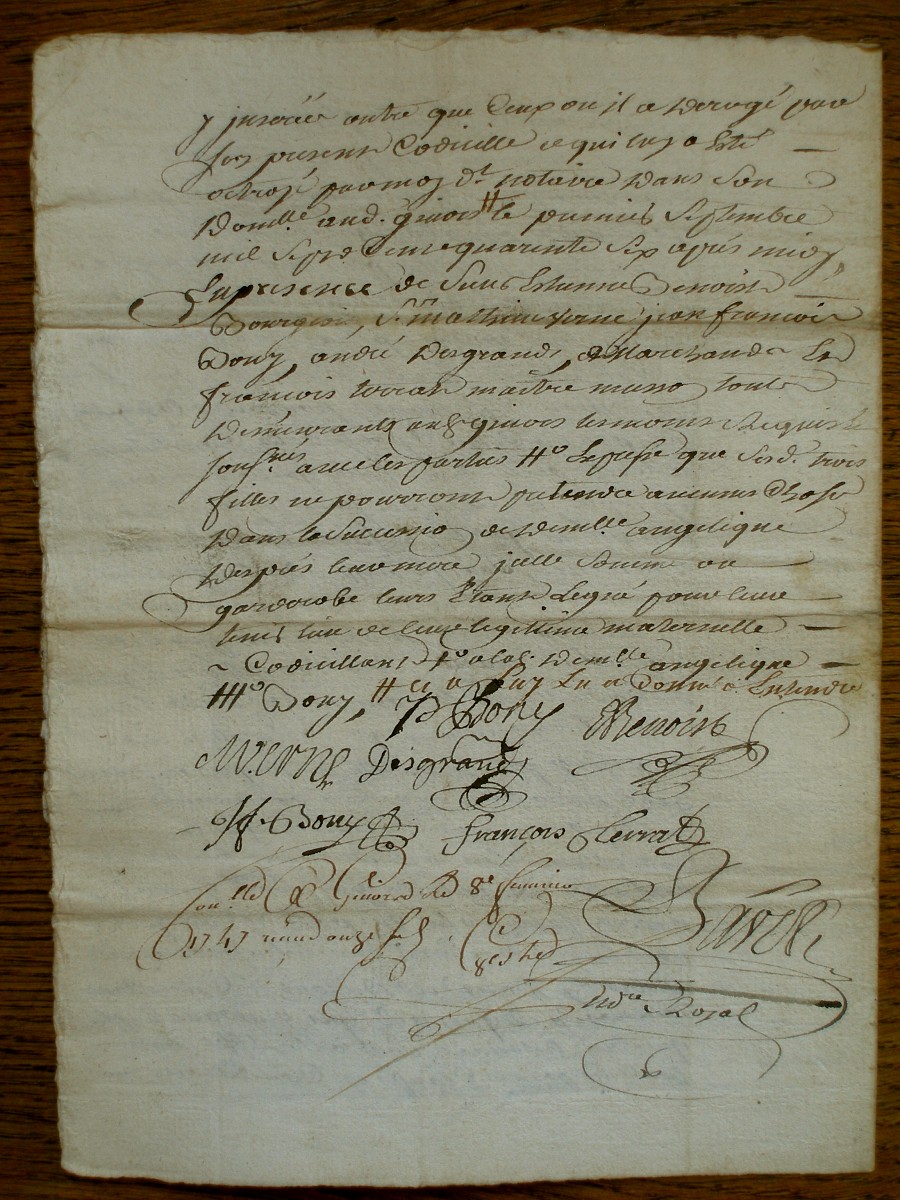 y inserée outre que Ceux ou il a derogé par
son present Codicille ce qui luy a esté
octroyé par moy dt. notaire dans son
Domlle. aud. givors # le premier Septembre
mil Sept Cent quarante Six apres midy
En presence de Sieurs Estienne Benoist
Bourgeois, Sr. mathieu verne jean francois
Bony, andré Desgrands, Marchands Et
francois terrat maître tous
Demeurants aud givors temoins Requis et
Soussnes. avec les parties #o que sesd. trois
filles ne pourront pretendre aucunes Chose
Dans la Succession de Demlle. angelique
Després leur mere Somme ou
garderobe leurs Etant Legué pour leur
tenir lieu de leur legitime maternelle
Codicillant #o a lad. Demlle. angelique
###o Bony, # et a Luy Lu a Donné a Entendre
Bony EBenoist
M.verne Desgrand
Bony françois Terrat
Conllé givors Le 8e
1747 onze s.
Notre Royal